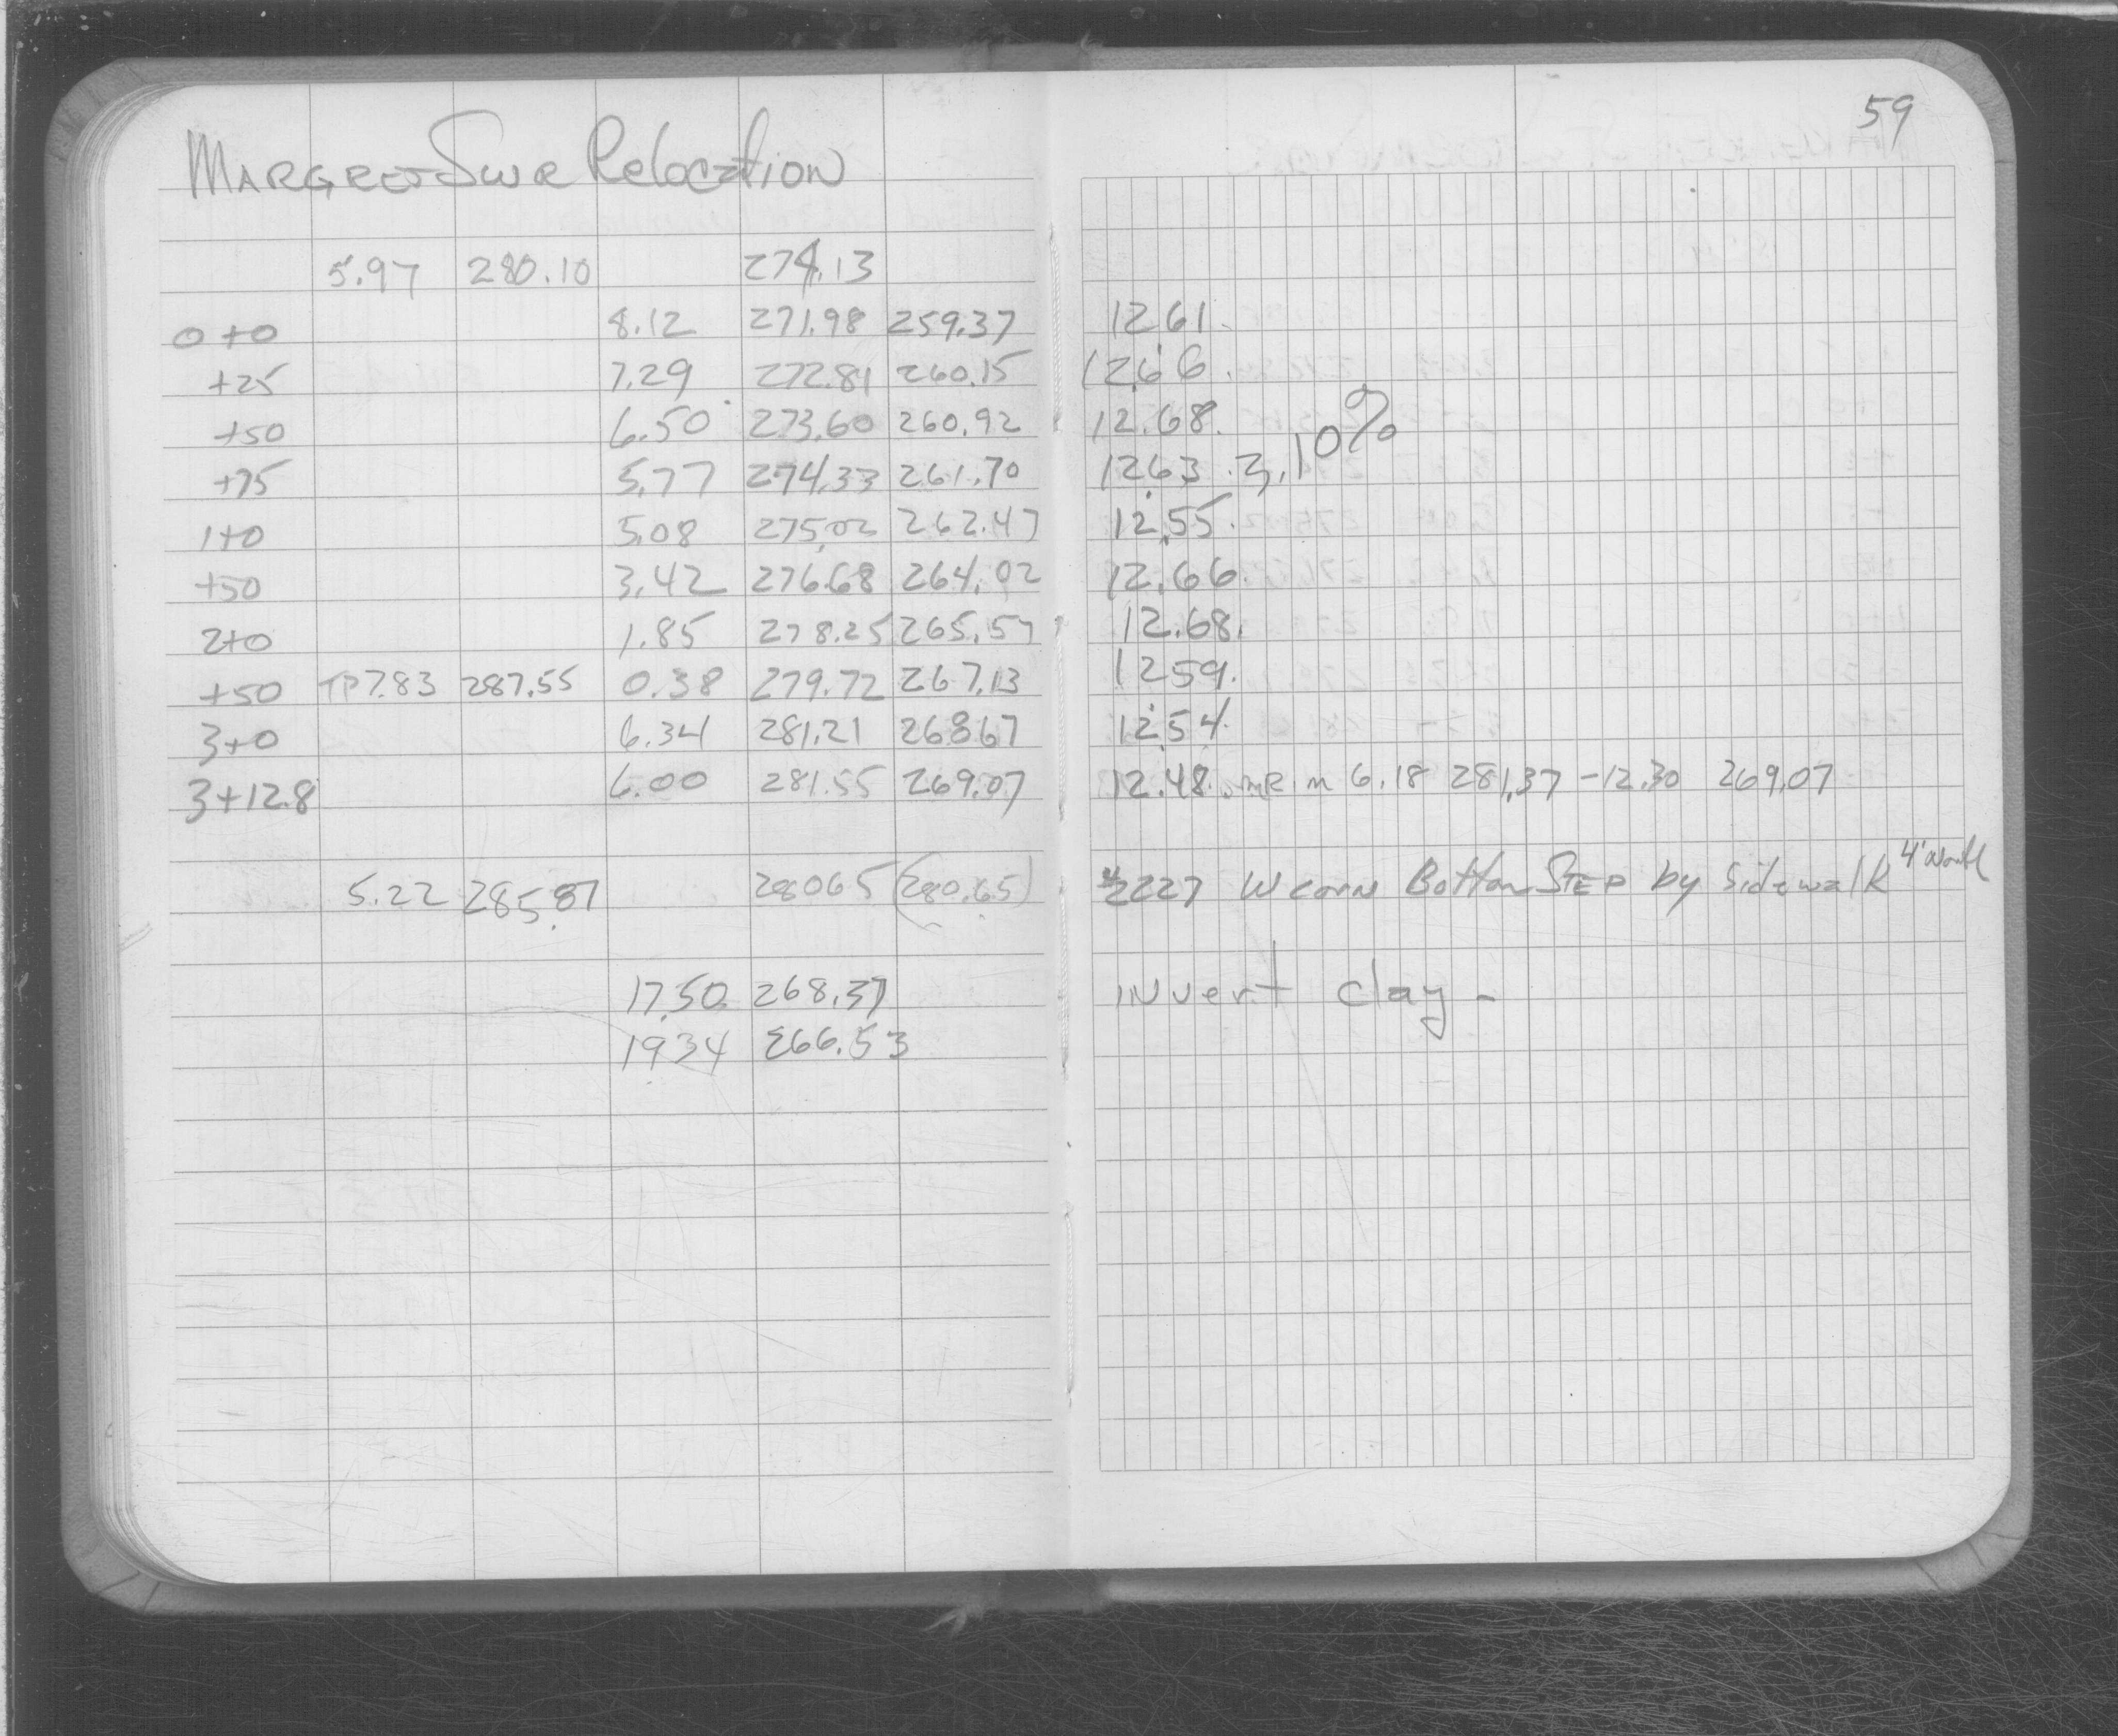 59
MARGRET SWR Relocation
5.97 280.10 274.13
0+0 8.12 271.98 259.37 12.61.
+25 7.29 272.81 260.15 12.66.
+50 6.50 273.60 260.92 12.68.
+75 5.77 274.33 261.70 12.63. 3.10%
1+0 5.08 275.02 262.47 12.55.
+50 3.42 276.68 264.02 12.66.
2+0 1.85 278.25 265.57 12.68.
+50 TP 7.83 287.55 0.38 279.72 267.13 12.59.
3+0 6.34 281.21 268.67 12.54.
3+12.8 6.00 281.55 269.07 12.48. 6.18 281.37 -12.30 269.07
5.22 285.87 280.65 (280.65) #2227 W corn Bottom STEP by Sidewalk
17.50 268.37 INvert clay -
19.34 266.53